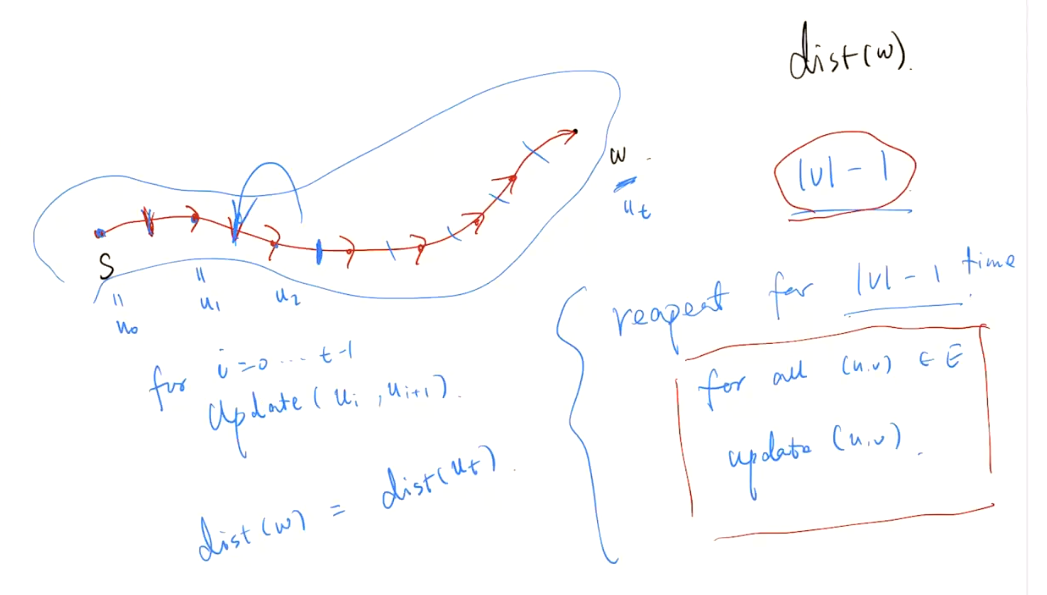 dist(w).
|v| - 1
w
u_t
S
u_0
u_1
u_2
for i=0 ... t-1
update(u_i, u_{i+1}).
dist(w) = dist(u_t).
reapent for |v| - 1 time
for all (u,v) ∈ E
update (u,v).